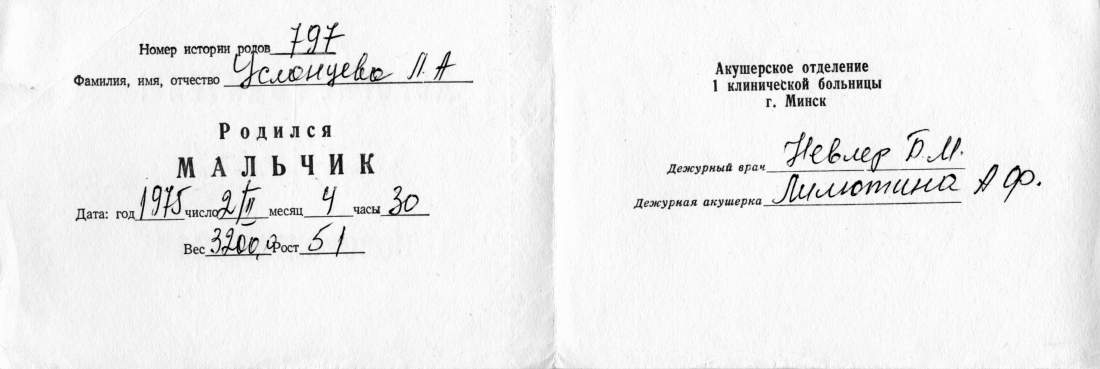 Номер истории родов 797
Фамилия, имя, отчество Услонцева Л. А
Родился
МАЛЬЧИК
Дата: год 1975 число 2/II месяц 4 часы 30
Вес 3200,0 Рост 51
Акушерское отделение
1 клинической больницы
г. Минск
Дежурный врач Невлер Б.М.
Дежурная акушерка Лимютина А Ф.